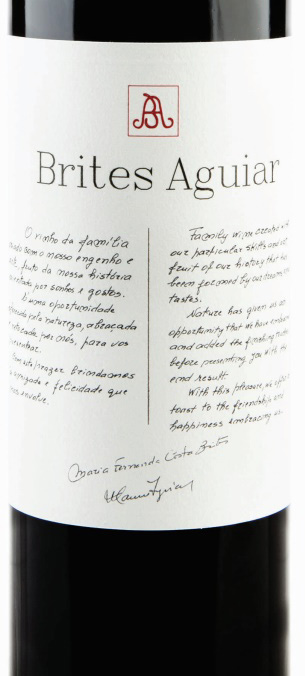 BA
Brites Aguiar
O vinho da família
com o nosso engenho e
fruto da nossa história
por sonhos e gostos.
É uma oportunidade
pela natureza, abraçada
por nós, para vos
prazer brindamos
e felicidade que
envolve.
Family wine created with
our particular skills and
fruit of our history that has
been formed by our dreams
tastes.
Nature has given us an
opportunity that we have embraced
and added the finishing
before presenting you with the
end result.
With this pleasure, we
toast to the friendship and
happiness embracing us.
Maria Fernanda Costa Brites